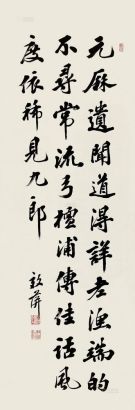 元麻遺聞道得詳老漁端的
不尋常流弓檀浦傳佳話風
度依稀見九郎
啟薜